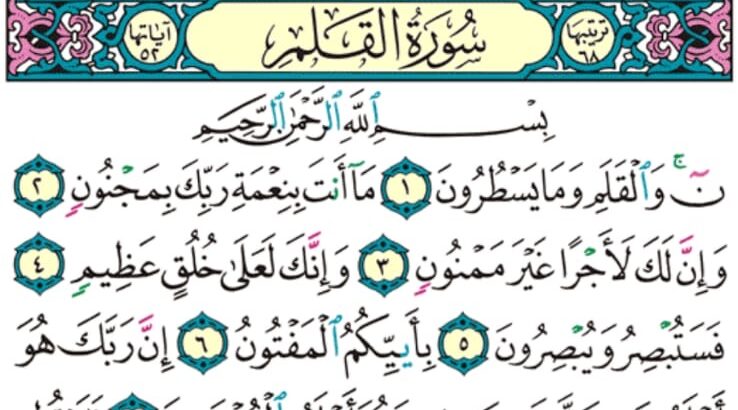 ترتيبها ٦٨
سُورَةُ القَلَمِ
آياتها ٥٢
بِسْمِ ٱللَّهِ ٱلرَّحْمَٰنِ ٱلرَّحِيمِ
نٓ ۚ وَٱلْقَلَمِ وَمَا يَسْطُرُونَ ١ مَآ أَنتَ بِنِعْمَةِ رَبِّكَ بِمَجْنُونٍ ٢
وَإِنَّ لَكَ لَأَجْرًا غَيْرَ مَمْنُونٍ ٣ وَإِنَّكَ لَعَلَىٰ خُلُقٍ عَظِيمٍ ٤
فَسَتُبْصِرُ وَيُبْصِرُونَ ٥ بِأَييِّكُمُ ٱلْمَفْتُونُ ٦ إِنَّ رَبَّكَ هُوَ